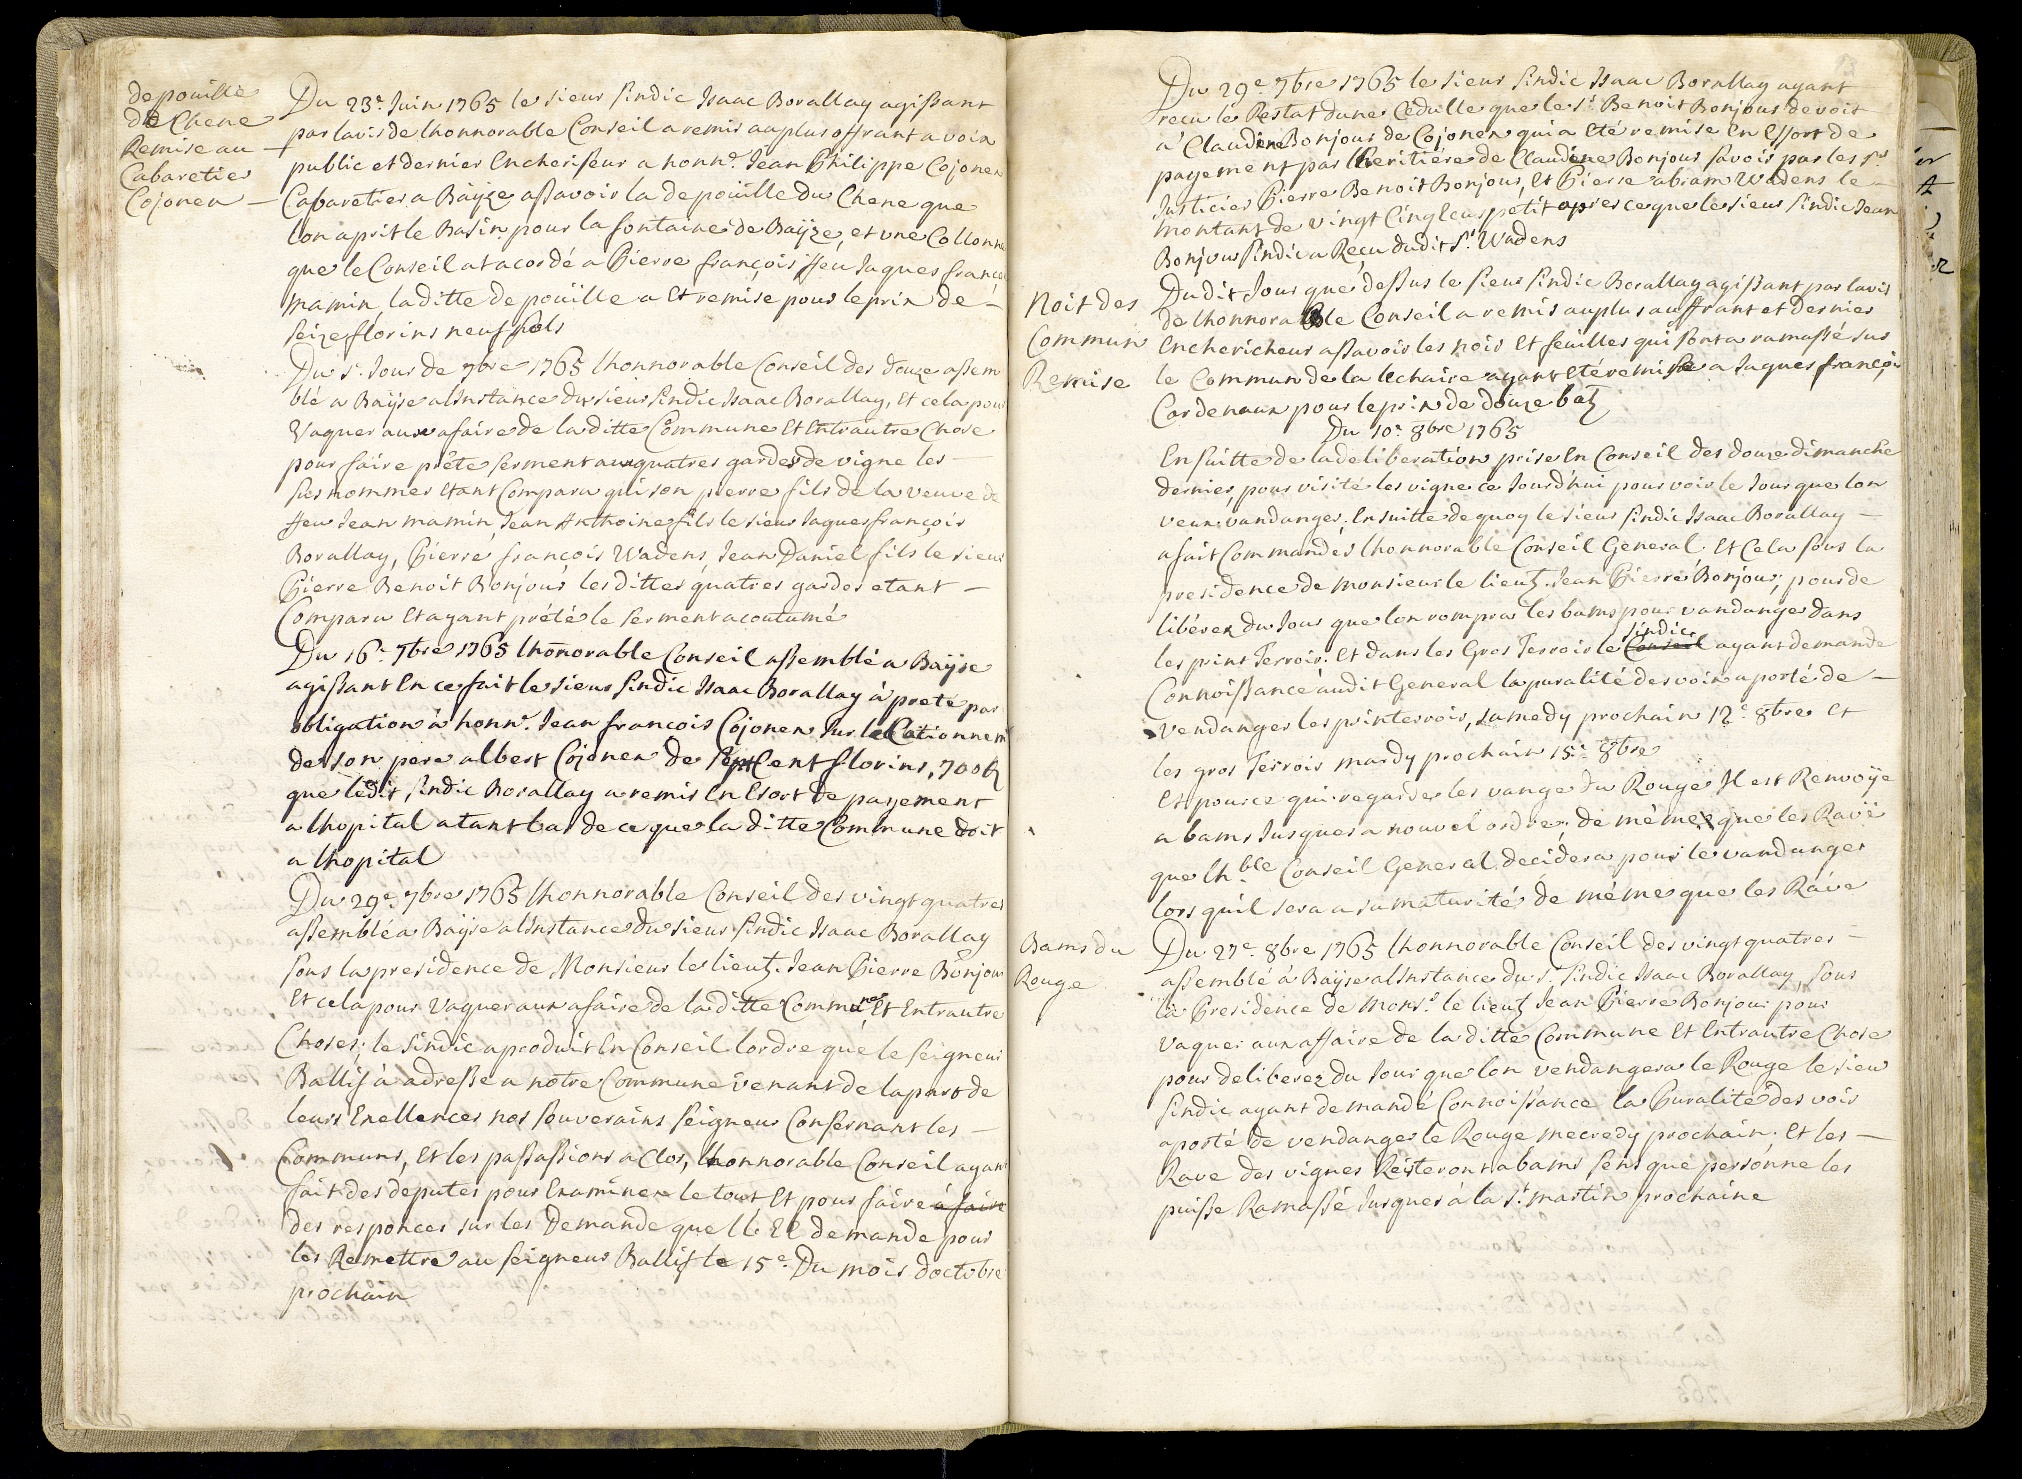 depouille
de Chene
Remise au —
Cabaretier
Cojonex —
Du 23e. Juin 1765 le sieur sindic Isaac Borallay agissant
par lavis de lhonnorable Conseil a remis au plus offrant a voix
public et dernier Encheriseur a honne. Jean Philippe Cojonex
Cabaretier a Baÿze assavoir la depoüille du Chene que
lon a prit le Basin pour la fontaine de Baÿze, et une Collonne
que le Conseil at acordé a Pierre françois ffeu Jaques françoi
mamin, laditte depoüille a Et remise pour le prix de —
seize florins neuf sols
Du 1r. Jour de 7bre 1765 lhonnorable Conseil des douze assem
blé a Baÿse alInstance du sieur sindic Isaac Borallay, Et cela pour
Vaquer aux afaire de la ditte Commune Et Entrautre Chose
pour faire prête serment aux quatres gardes de vigne les —
sus nommer Etant Comparu qui son pierre fils de la veuve de
ffeu Jean mamin, Jean Anthoine fils le sieur Jaques françois
Borallay, Pierre françois Wadens, Jean Daniel fils le sieur
Pierre Benoit Bonjour les dittes quatres gardes etant —
Comparu Et ayant prété le serment acoutumé
Du 16e. 7bre 1765 lhonnorable Conseil assemblé a Baÿse
agissant En ce fait le sieur sindic Isaac Borallay à prete par
obligation à honne. Jean francois Cojonex sur le Cationnemt
de son pere albert Cojonex de sept Cent florins, 700 fl
que ledit sindic Borallay a remis En Esort de payement
a lhopital atant bas de ce que la ditte Commune doit
a lhopital
Du 29e. 7bre 1765 lhonnorable Conseil des vingt quatres
assemblé a Baÿse alInstance du sieur sindic Isaac Borallay
sous la presidence de Monsieur le lieut. Jean Pierre Bonjour
Et cela pour Vaquer aux afaire de la ditte Commune, Et Entrautre
Choses; le sindic a produit En Conseil lordre que le seigneur
Ballif à adresse a notre Commune venant de la part de
leurs Exellences nos souverains seigneur Consernant les —
Communs, Et les passassions a Clos, lhonnorable Conseil ayant
fait des deputes pour Examiner le tout, Et pour faire a faire
des responces sur les Demande que ll. EE demande pour
les Remettre au seigneur Ballif le 15e. Du mois doctobre
prochain
Du 29e. 7bre 1765 le sieur sindic Isaac Borallay ayant
recu le Restat dune Cedulle que le sr. Benoit Bonjour devoit
à Claudine Bonjour de Cojonex qui a Eté remise En Essort de
payement par lheritiére de Claudine Bonjour savoir par les srs
Justicier Pierre Benoit Bonjour, Et Pierre abram Wadens le —
montant de vingt Cinq Ecus petit apres ce que le sieur sindic Jean
Bonjour sindic a Reçu dudit sr. Wadens
Noit des
Commun
Remise
Dudit Jour que dessus le sieur sindic Borallay agissant par lavis
de lhonnorable Conseil a remis au plus auffrant et dernier
Enchericheur assavoir les nois Et feuilles qui sont a ramassé sur
le Commun de la Lechaire ayant Eté remise a Jaques françois
Cardenaux pour le prix de douze batz
Du 10e. 8bre 1765
En suitte de la deliberation prise En Conseil des douze dimanche
dernier, pour visité les vigne ce Jourd'hui pour voir le Jour que lon
veux vandanger, En suitte de quoy le sieur sindic Isaac Borallay —
a fait Commandés lhonnorable Conseil General. Et Cela sous la
presidence de monsieur le lieut. Jean Pierre Bonjour, pour de
libérer du Jour que lon rompra les bams pour vandanger dans
les pint Terroir, Et dans les Gros Terroir le Conseil sindic ayant demande
Connoissance audit General la puralité des voix a porté de —
vendanger les pinterroir, samedy prochain 12e. 8bre Et
les gros Terroir mardy prochain 15e. 8bre
Et pour ce qui regarde les vange du Rouge Il est Renvoÿe
a bams Jusques a nouvel ordre, de même que les Ravë
que lhble Conseil General decidera pour le vandanger
lors quil sera a sa maturité de méme que les Ráve
Bams du
Rouge
Du 27e. 8bre 1765 lhonnorable Conseil des vingt quatres —
assemblé à Baÿse alInstance du sr. sindic Isaac Borallay, sous
la Presidence de Monsr. le lieut Jean Pierre Bonjour pour
vaquer aux affaire de la ditte Commune Et Entrautre Chose
pour deliberez du Jour que lon vendangera le Rouge le sieur
sindic ayant demandé Connoissance la Puralité des vois
a porté de vendanger le Rouge mecredy prochain. Et les —
Rave des vignes Résteront a bams sens que persónne les
puisse Ramassé Jusques à la St. martin prochaine